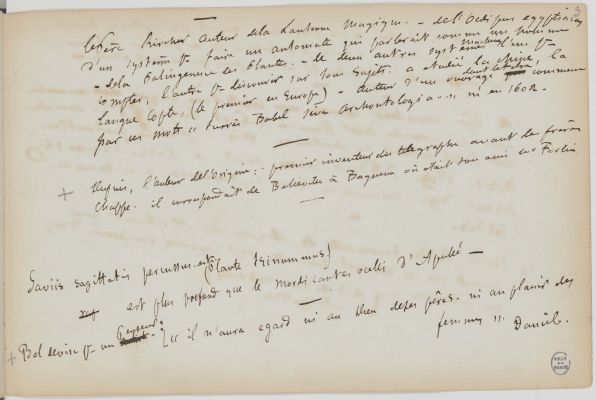 3
le Père Kircher auteur de la Lanterne Magique. - de l'Oedipus egyptiacus
d'un système pr faire un automate qui parlerait comme un homme
- de la Palingenesie des Plantes. - de deux autres systèmes l'un pr
compter, l'autre pr discourir sur tous sujets. a étudié la
langue copte, (le premier en Europe) - auteur d'un ouvrage dont le titre commence
par ces mots "Turris Babel sive Archontologia..", né en 1602.
+ Dupuis, l'auteur de l'Origine.: premier inventeur du telegraphe avant les frères
Chappe. il correspondait de Belleville à Bagneux où était son ami Mr Fortin
Saviis sagittatis percussus est (Plaute Trinummus)
est plus profond que le mordicantes ocelli d'Apulée -
+ Bel devise pr un Penseur: "Et il n'aura egard ni au Dieu de ses pères. ni au plaisir des
femmes". Daniel.
VILLE DE PARIS